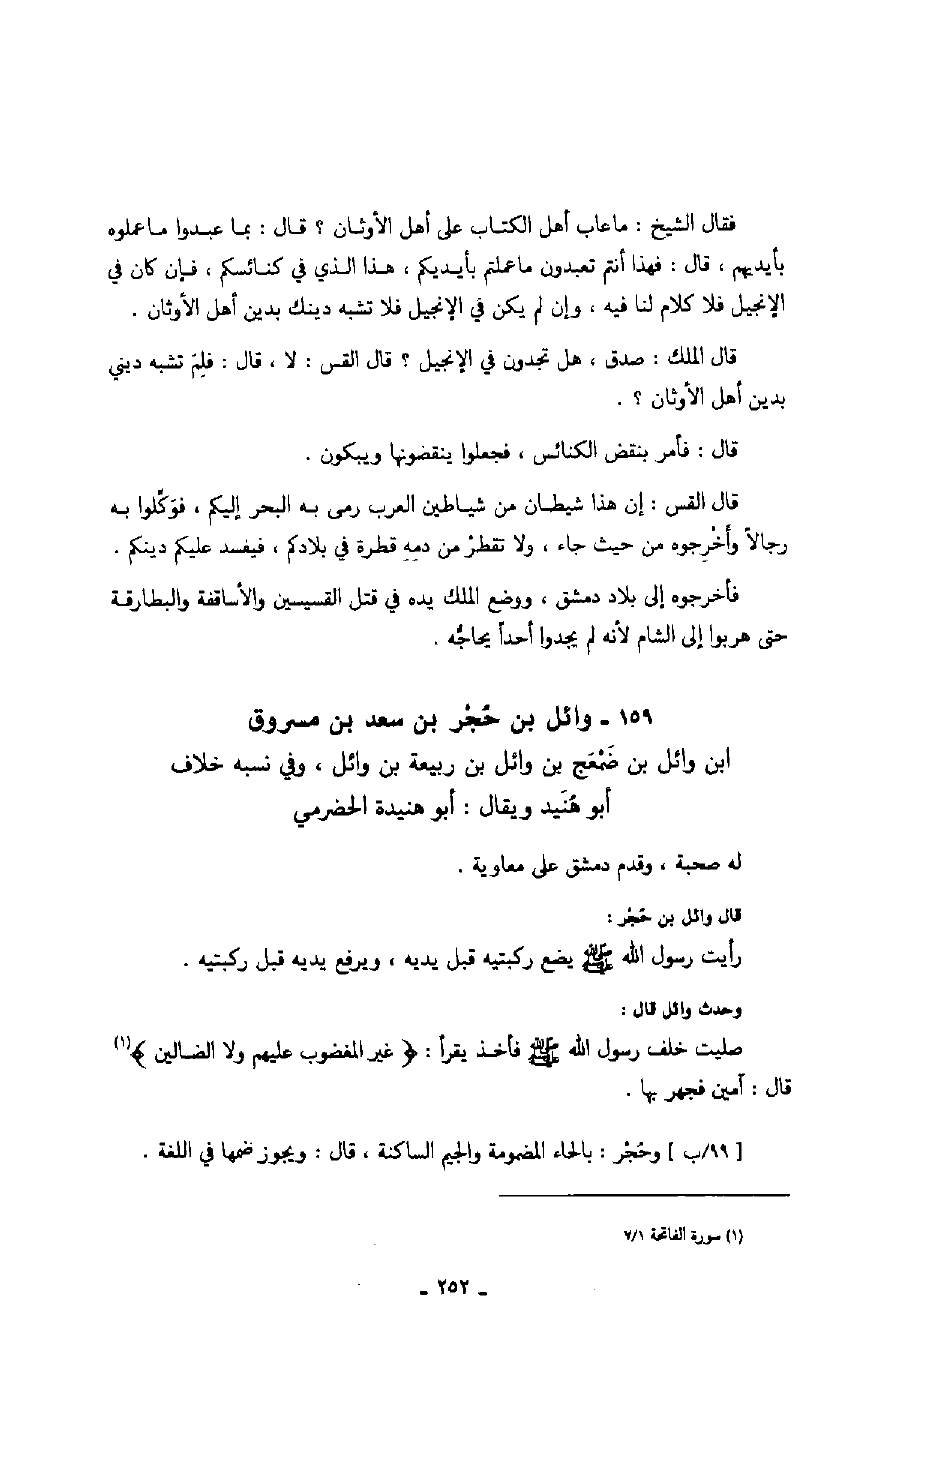 فقال الشيخ : ماعاب أهل الكتاب على أهل الأوثان ؟ قال : بما عبدوا ماعملوه
بأيديهم ، قال : فهذا أنتم تعبدون ماعملتم بأيديكم ، هذا الذي في كنائسكم ، فإن كان في
الإنجيل فلا كلام لنا فيه ، وإن لم يكن في الإنجيل فلا تشبه دينك بدين أهل الأوثان .
قال الملك : صدق ، هل تجدون في الإنجيل ؟ قال القس : لا ، قال : فلِمَ تشبه ديني
بدين أهل الأوثان ؟ .
قال : فأمر بنقض الكنائس ، فجعلوا ينقضونها ويبكون .
قال القس : إن هذا شيطان من شياطين العرب رمى به البحر إليكم ، فوَكِّلوا به
رجالاً وأَخْرِجوه من حيث جاء ، ولا تقطرْ من دمهِ قطرة في بلادكم ، فيفسد عليكم دينكم .
فأخرجوه إلى بلاد دمشق ، ووضع الملك يده في قتل القسيسين والأساقفة والبطارقة
حتى هربوا إلى الشام لأنه لم يجدوا أحداً يحاجُّه .
١٥٩ ـ وائل بن حُجْر بن سعد بن مسروق
ابن وائل بن ضَمْعَج بن وائل بن ربيعة بن وائل ، وفي نسبه خلاف
أبو هُنَيد ويقال : أبو هنيدة الحضرمي
له صحبة ، وقدم دمشق على معاوية .
قال وائل بن حُجْر :
رأيت رسول الله ﷺ يضع ركبتيه قبل يديه ، ويرفع يديه قبل ركبتيه .
وحدث وائل قال :
صليت خلف رسول الله ﷺ فأخذ يقرأ : ﴿ غير المغضوب عليهم ولا الضالين ﴾(١)
قال : آمين فجهر بها .
[ ٩٩/ب ] وحُجْر : بالحاء المضمومة والجيم الساكنة ، قال : ويجوز ضمها في اللغة .
(١) سورة الفاتحة ٧/١
ـ ٢٥٢ ـ